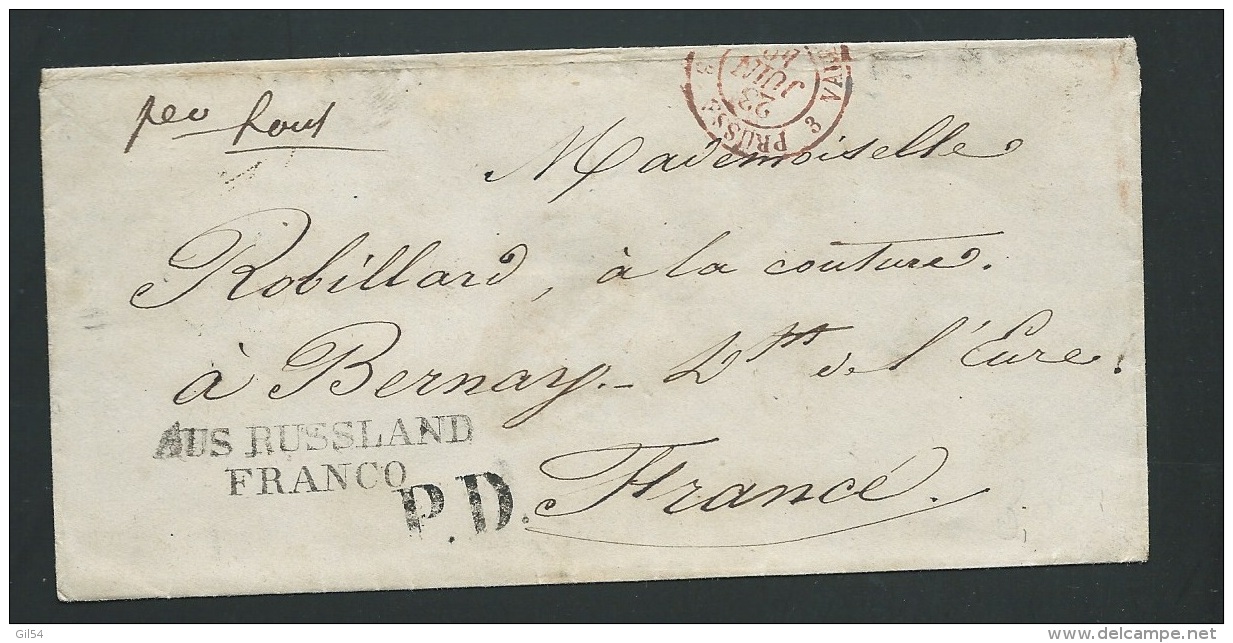 Mademoiselle
Robillard, à la couture.
à Bernay. Dpt de l'Eure.
France.
AUS RUSSLAND
FRANCO
P.D.
3 PRUSSE 3
23
JUIN
Gil54
www.delcampe.net